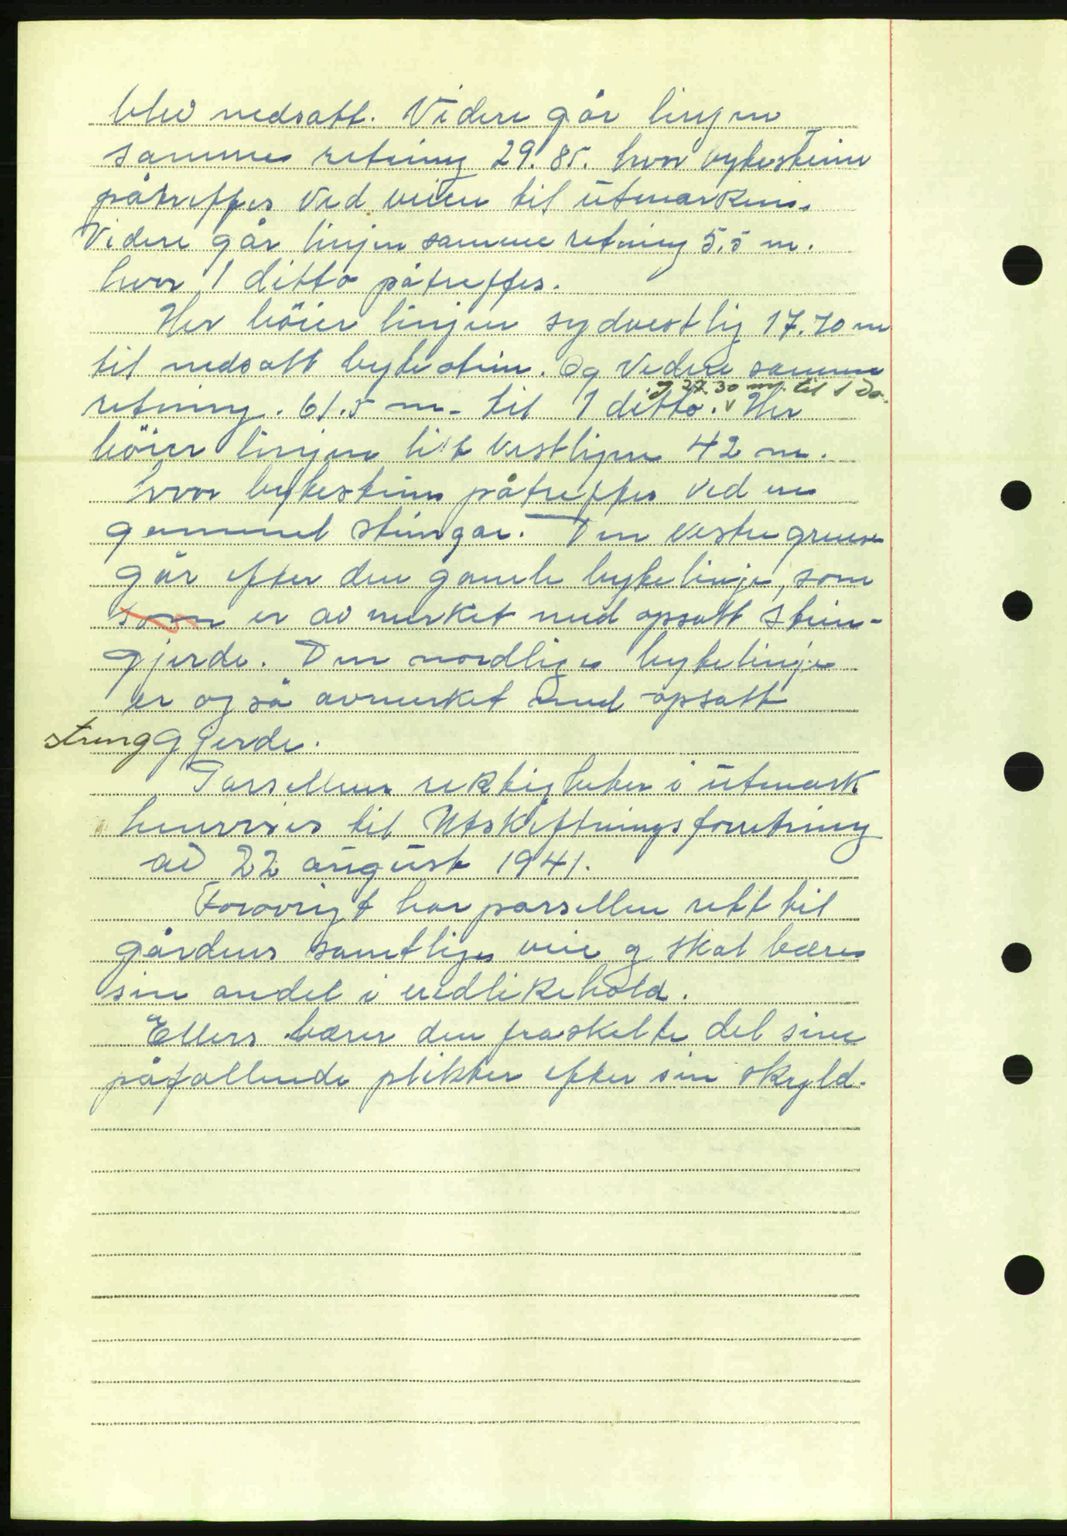 blev nedsatt. Videre går linjen
samme retning 29.85. hvor bytestein
påtreffes ved veien til utmarken.
Videre går linjen samme retning 5.5 m.
hvor 1 ditto påtreffes.
Her böier linjen sydvestlig 17.70 m
til nedsatt bytestein. Og videre samme
og 27.30 m. til 1 Do.
retning. 61.5 m. til 1 ditto. v Her
böier linjen lit vestligere 42 m.
hvor bytestein påtreffes ved en
gammel steingar. Den vestre grense
går efter den gamle bytelinje, som
som er av merket med opsatt stein-
gjerde. Den nordlige bytelinje
er også avmerket med opsatt
strenggjerde.
Parsellens rektigheter i utmark
henvises til Utskiftningsforretning
av 22 august 1941.
Forøvrigt har parsellen rett til
gårdens samtlige veie og skal bære
sin andel i vedlikehold.
Ellers bærer den fraskilte del sine
påfallende plikter efter sin skyld.